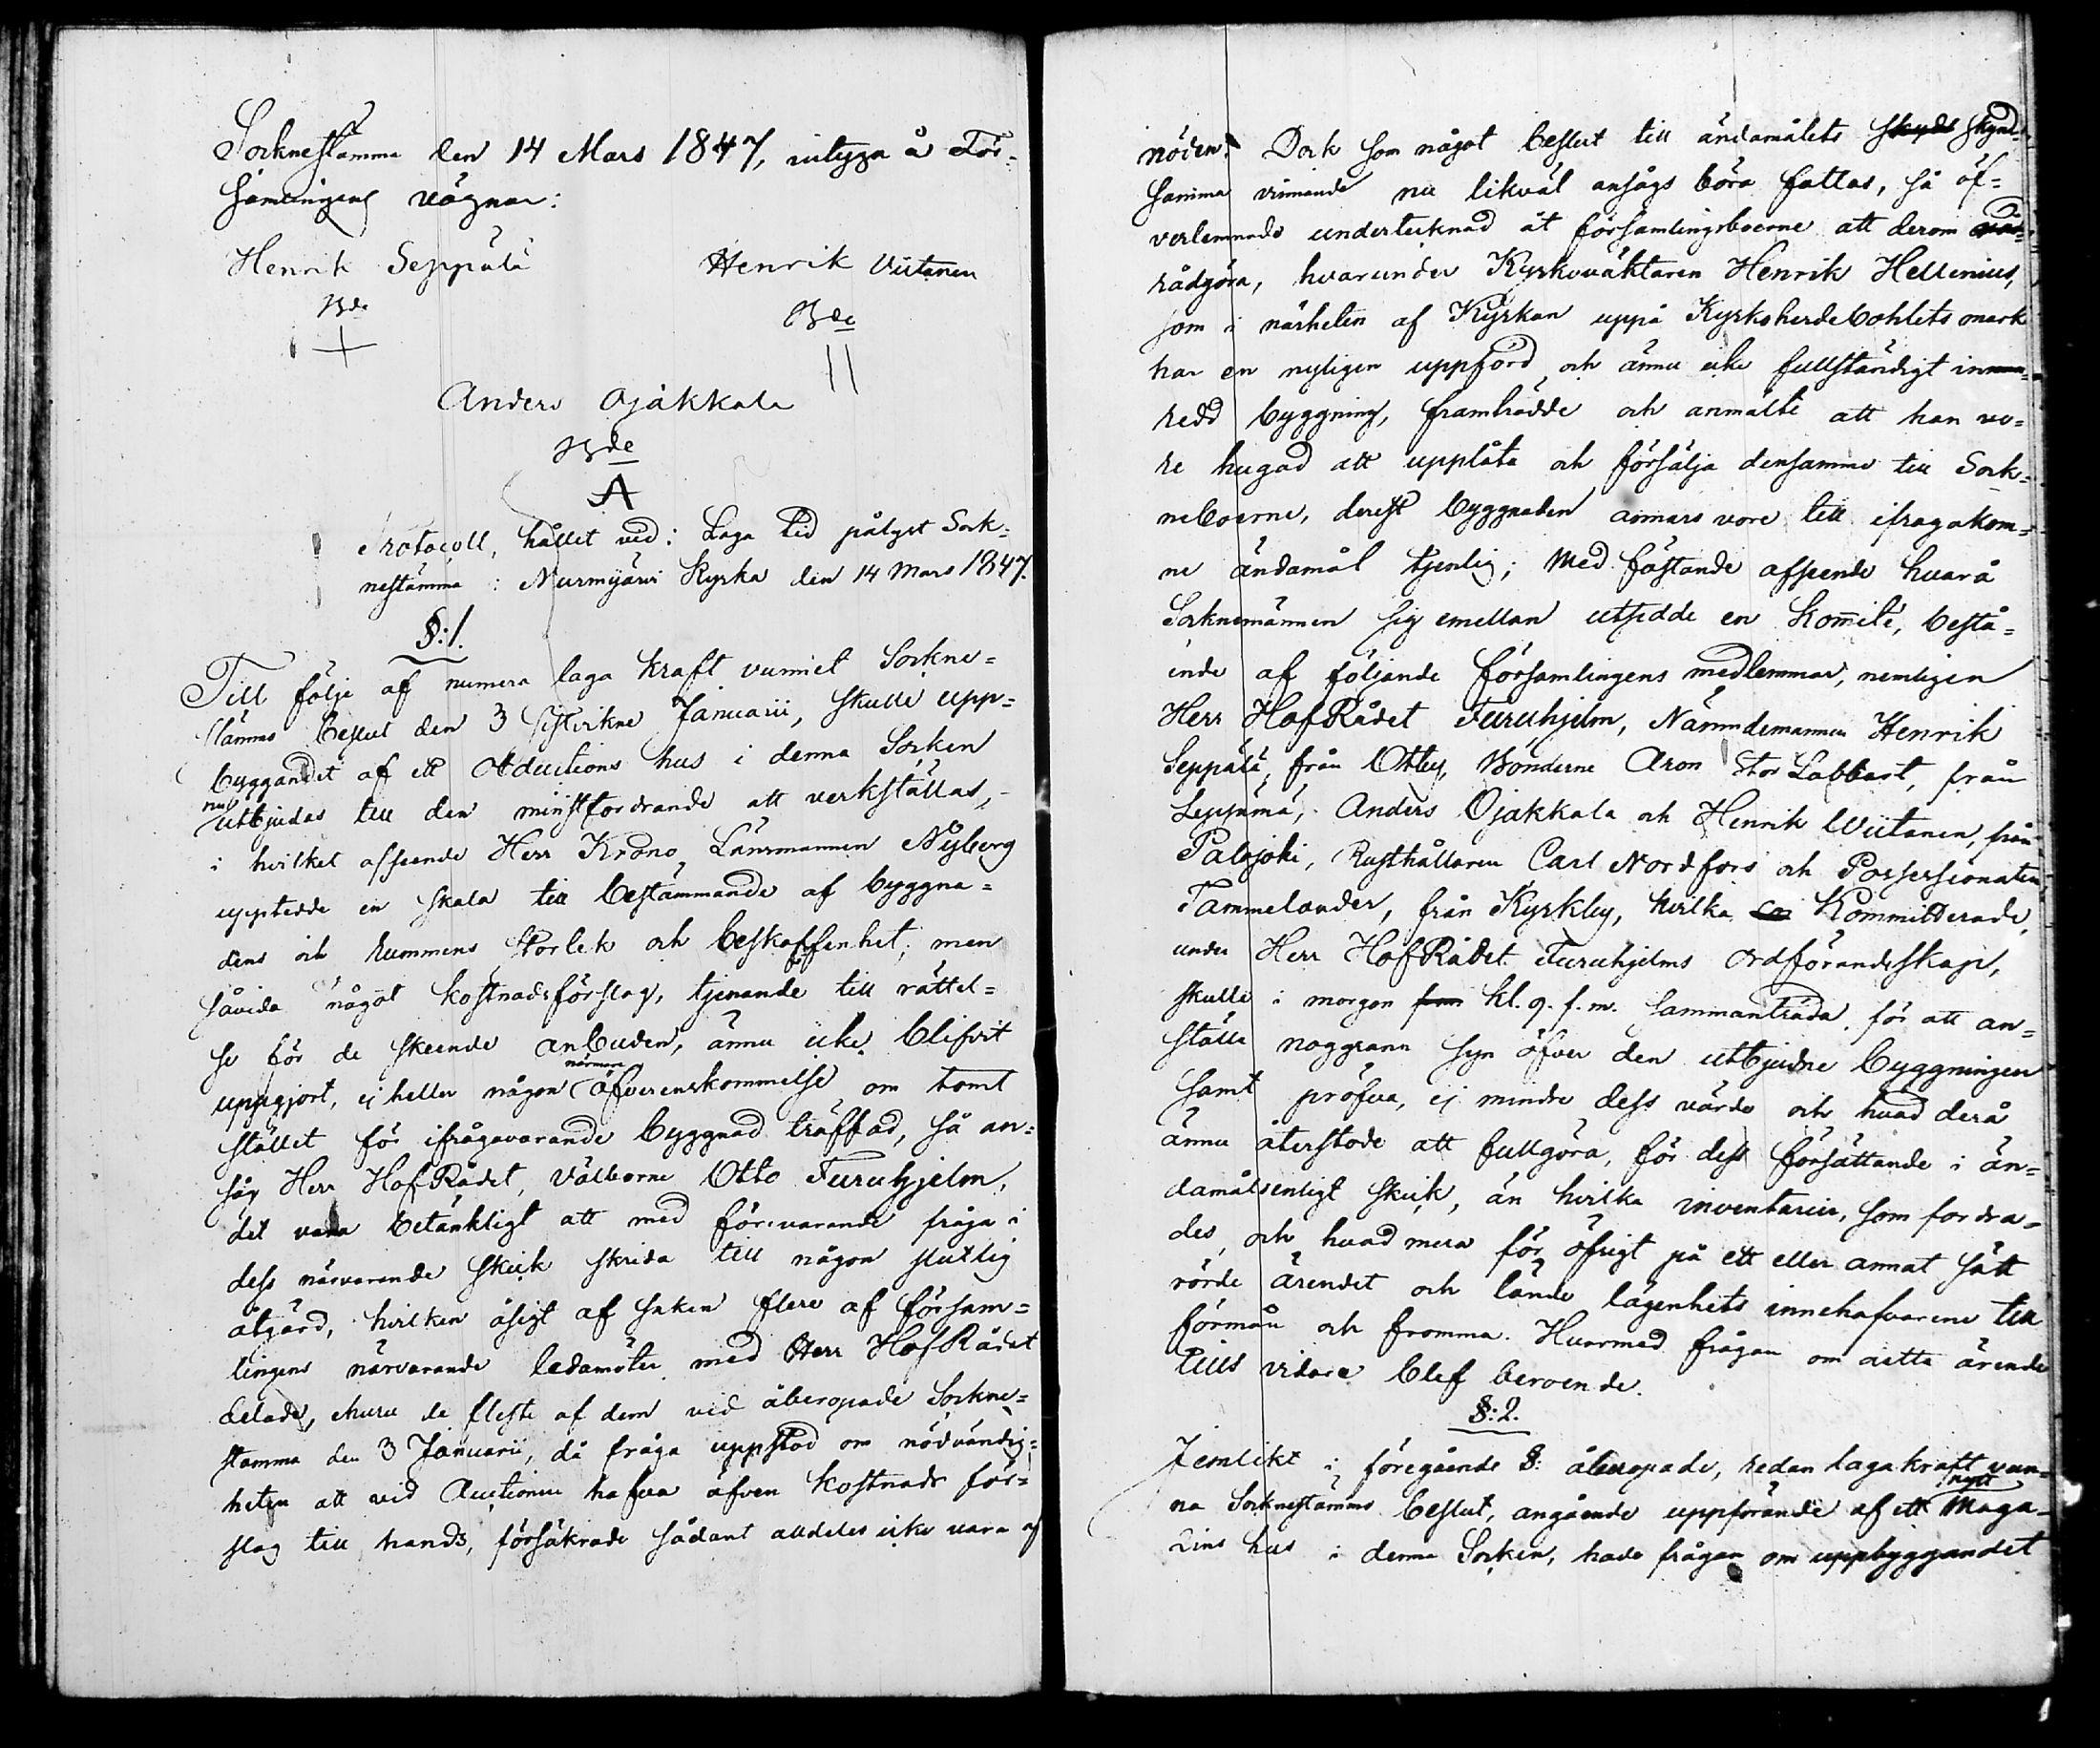 Sockneſtämma den 14 Mars 1847, intyga å För-
ſamlingens vägnar:
Henrik Seppälä Henrik Viitanen
Bde Bde
+ ||
Anders Ojakkala
Bde
A
Protocoll, hållet vid i Laga tid pålyst Sock-
nestämma i Nurmijärvi Kyrka den 14 Mars 1847.
§:1.
Till följe af numera laga kraft vunnet Sockne-
ſtämmo beslut den 3 ſiſtvikne Januarii, skulle upp-
byggandet af ett Auctions hus i denna Socken
nu
utbjudas till den minſtfordrande att verkställas,
i hvilket afseende Herr Krono Länsmannen Nyberg
upptedde en skala till bestämmande af byggna-
dens och rummens storlek och beskaffenhet; men
såvida något kostnadsförslag, tjenande till rättel-
se för de skeende anbuden, ännu icke blifvit
närmare
uppgjort, ej heller någon öfverenskommelse om tomt
stället för ifrågavarande byggnad träffad, så an-
såg Herr HofRådet, välborne Otto Furuhjelm,
det vara betänkligt att med förevarande fråga i
dess närvarande skick skrida till någon slutlig
åtgärd, hvilken åsigt af saken flere af försam-
lingens närvarande ledamöter med Herr HofRådet
delade, churu de fleste af dem vid åberopade Sockne-
stämma den 3 Januarii, då fråga uppstod om nödvändig-
heten att vid Auctionen hafva äfven kostnads för-
slag till hands, försäkrade sådant alldeles icke vara af
nöden. Dock som något beslut till ändamålets skynd-
samma vinnande nu likväl ansågs böra fattas, så öf-
verlemnade undertecknad åt församlingsboerne att derom
rådgöra, hvarunder Kyrkovaktaren Henrik Hellenius,
som i närheten af Kyrkan uppå Kyrkoherdebohlets mark
har en nyligen uppförd och ännu icke fullständigt in
redd byggning, framträdde och anmälte att han vo-
re hugad att upplåta och försälja densamma till Sock-
neboerne, derest byggnaden annars vore till ifrågakom-
ne ändamål tjenlig; Med fästande afseende hvarå
Socknemännen sig emellan utsedde en Komité, bestå-
ende af följande församlingens medlemmar, nemligen
Herr HofRådet Furuhjelm, Nämndemannen Henrik
Seppälä, från Ottby, Bönderne Aron Stor Labbart, från
Leppämä, Anders Ojakkala och Henrik Wiitanen, från
Palojoki, Rusthållaren Carl Nordfors och Possessionaten
Tammelander, från Kyrkby, hvilka Kommitterade,
under Herr HofRådet Furuhjelms ordförandskap,
skulle i morgon kl. 9. f.m. sammanträda, för att an-
ställa noggrann syn öfver den utbjudne byggningen
samt pröfva, ej mindre dess värde och hvad derå
ännu återstode att fullgöra, för dess försättande i än-
damålsenligt skick, än hvilka inventarier, som fordra-
des, och hvad mera för öfrigt på ett eller annat sätt
rörde ärendet och lände lägenhets innehafvarene till
förmån och fromma. Hvarmed frågan om detta ärende
tills vidare blef beroende.
§:2.
Jemlikt i föregående §: åberopade, redan laga kraft vun-
nytt
na Socknestämmo beslut, angående uppförande af ett Maga-
zins hus i denna Socken, hade frågan om uppbyggandet